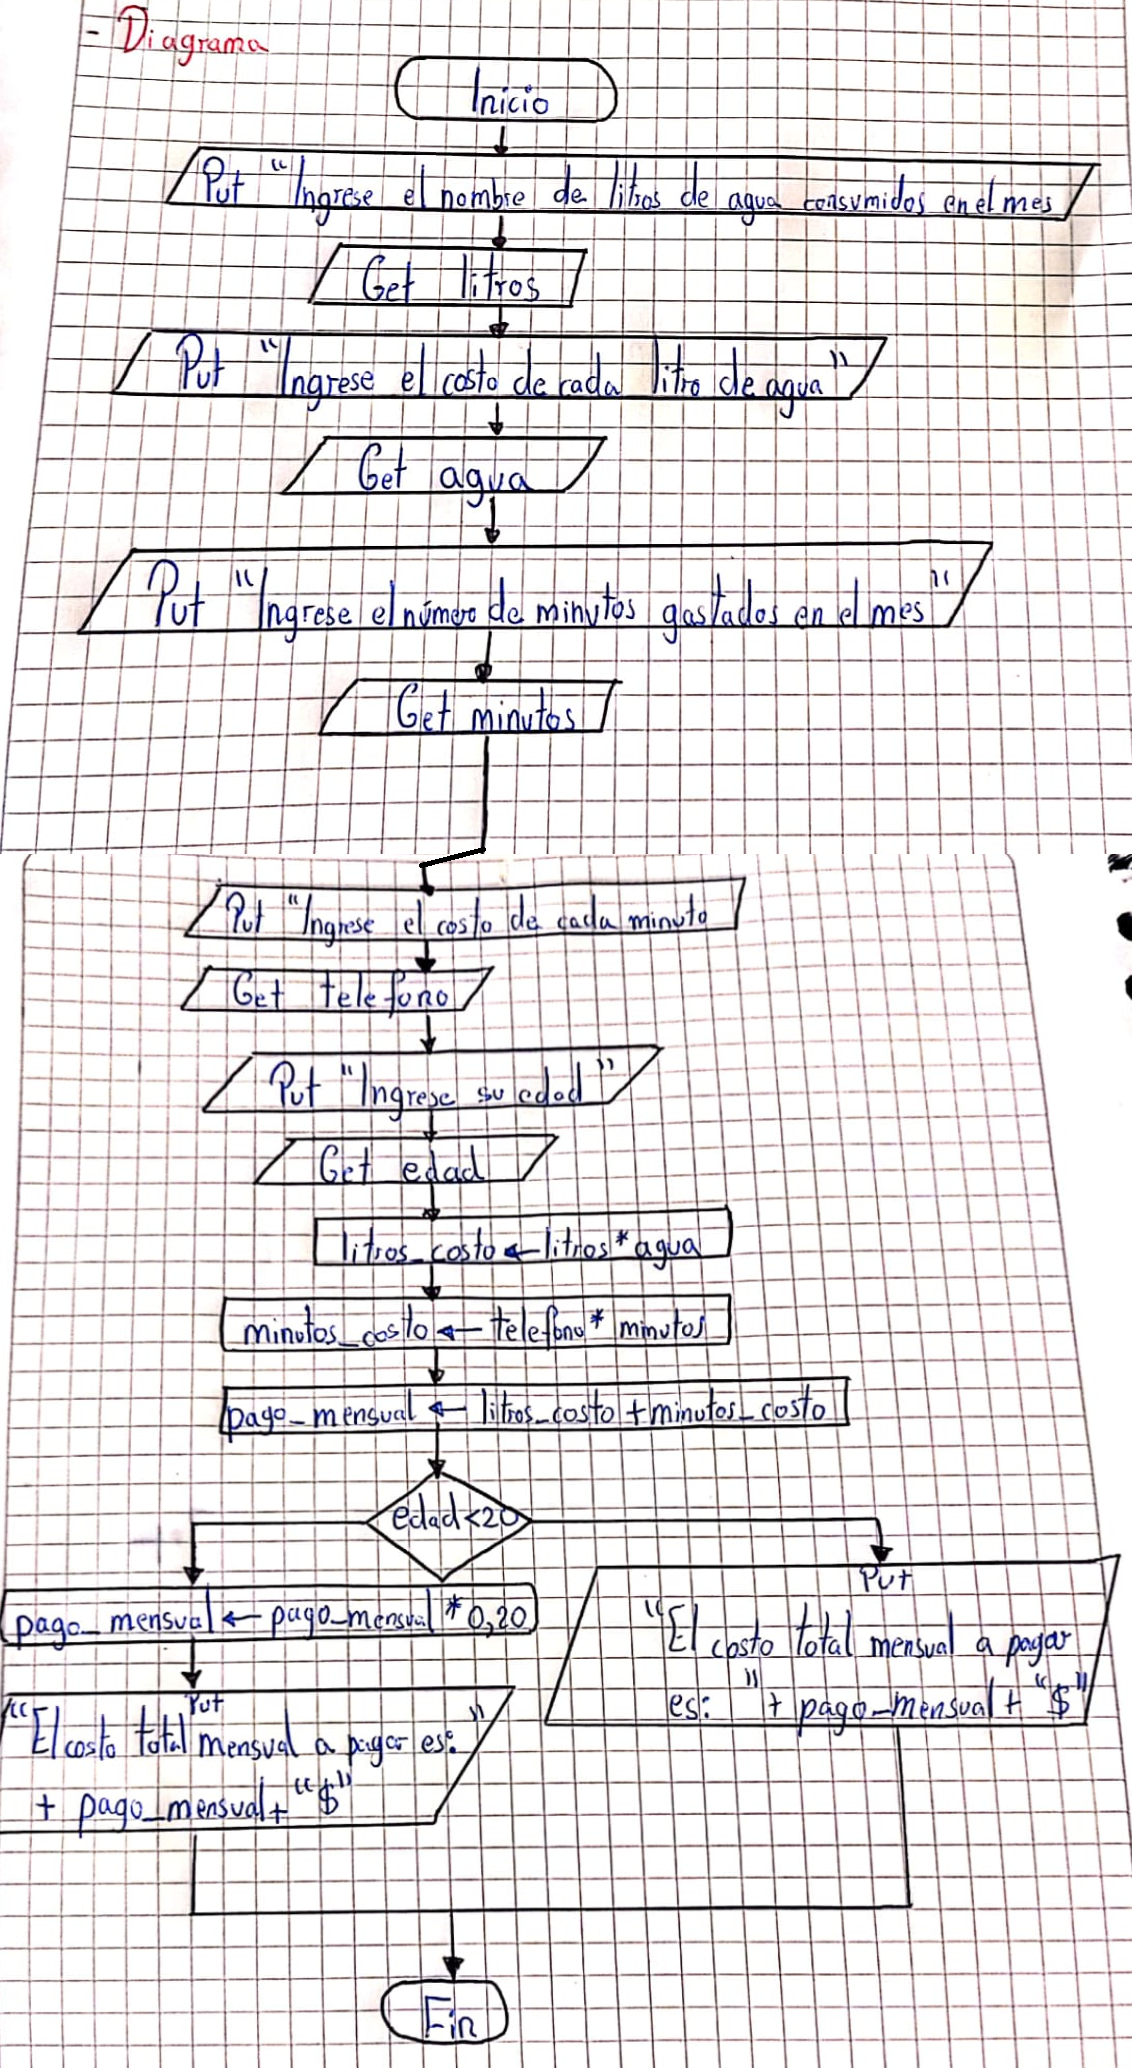 - Diagrama
Inicio
Put "Ingrese el nombre de litros de agua consumidos en el mes
Get litros
Put "Ingrese el costo de cada litro de agua"
Get agua
Put "Ingrese el número de minutos gastados en el mes"
Get minutos
Put "Ingrese el costo de cada minuto
Get telefono
Put "Ingrese su edad"
Get edad
litros_costo ← litros * agua
minutos_costo ← telefono * minutos
pago_mensual ← litros_costo + minutos_costo
edad<20
pago_mensual ← pago_mensual * 0,20
Put
"El costo total mensual a pagar es: "
+ pago_mensual + "$"
Put
"El costo total mensual a pagar
es: " + pago_mensual + "$"
Fin